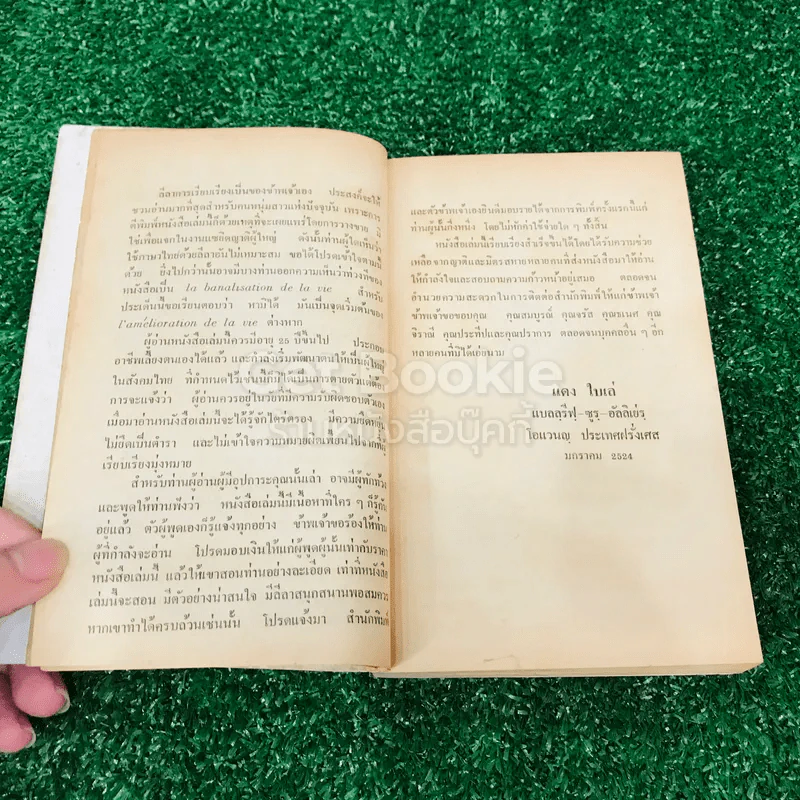 ลีลาการเรียบเรียงเป็นของข้าพเจ้าเอง ประสงค์จะให้
ชวนอ่านมากที่สุดสำหรับคนหนุ่มสาวแห่งปัจจุบัน เพราะการ
ตีพิมพ์หนังสือเล่มนี้ก็ด้วยเหตุที่จะเผยแพร่โดยการวางขาย มิ
ใช่เพื่อแจกในงานแซยิดญาติผู้ใหญ่ ดังนั้นท่านผู้ใดเห็นว่า
ใช้ภาษาไทยด้วยลีลาอันไม่เหมาะสม ขอได้โปรดเข้าใจตามนี้
ด้วย ยิ่งไปกว่านั้นอาจมีบางท่านออกความเห็นว่าท่วงทีของ
หนังสือเป็น la banalisation de la vie สำหรับ
ประเด็นนี้ขอเรียนตอบว่า หามิได้ มันเป็นจุดเริ่มต้นของ
l'amélioration de la vie ต่างหาก
ผู้อ่านหนังสือเล่มนี้ควรมีอายุ 25 ปีขึ้นไป ประกอบ
อาชีพเลี้ยงตนเองได้แล้ว และกำลังเริ่มพัฒนาตนให้เป็นผู้ใหญ่
ในสังคมไทย ที่กำหนดไว้เช่นนี้ก็มิได้เป็นการตายตัวแต่ต้อง
การจะแจ้งว่า ผู้อ่านควรอยู่ในวัยที่มีความรับผิดชอบตัวเอง
เมื่อมาอ่านหนังสือเล่มนี้จะได้รู้จักไตร่ตรอง มีความยืดหยุ่น
ไม่ยึดเป็นตำรา และไม่เข้าใจความหมายผิดเพี้ยนไปจากที่ผู้
เรียบเรียงมุ่งหมาย
สำหรับท่านผู้อ่านผู้มีอุปการะคุณนั้นเล่า อาจมีผู้ทักท้วง
และพูดให้ท่านฟังว่า หนังสือเล่มนี้มีเนื้อหาที่ใคร ๆ ก็รู้กัน
อยู่แล้ว ตัวผู้พูดเองก็รู้แจ้งทุกอย่าง ข้าพเจ้าขอร้องให้ท่าน
ผู้ที่กำลังจะอ่าน โปรดมอบเงินให้แก่ผู้พูดผู้นั้นเท่ากับราคา
หนังสือเล่มนี้ แล้วให้เขาสอนท่านอย่างละเอียด เท่าที่หนังสือ
เล่มนี้จะสอน มีตัวอย่างน่าสนใจ มีลีลาสนุกสนานพอสมควร
หากเขาทำได้ครบถ้วนเช่นนั้น โปรดแจ้งมา สำนักพิมพ์
และตัวข้าพเจ้าเองยินดีมอบรายได้จากการพิมพ์ครั้งแรกนี้แก่
ท่านผู้นั้นกึ่งหนึ่ง โดยไม่หักค่าใช้จ่ายใด ๆ ทั้งสิ้น
หนังสือเล่มนี้เรียบเรียงสำเร็จขึ้นได้โดยได้รับความช่วย
เหลือจากญาติและมิตรสหายหลายคนที่ส่งหนังสือมาให้อ่าน
ให้กำลังใจและสอบถามความก้าวหน้าอยู่เสมอ ตลอดจน
อำนวยความสะดวกในการติดต่อสำนักพิมพ์ให้แก่ข้าพเจ้า
ข้าพเจ้าขอขอบคุณ คุณสมบูรณ์ คุณจรัส คุณธเนศ คุณ
จิราณี คุณประทีปและคุณปราการ ตลอดจนบุคคลอื่น ๆ อีก
หลายคนที่มิได้เอ่ยนาม
แดง ใบเล่
แบลลุรีฟ-ซูรฺ-อัลลิเย่รฺ
โอแวนญฺ ประเทศฝรั่งเศส
มกราคม 2524
Get Bookie
ร้านหนังสือบุ๊คกี้